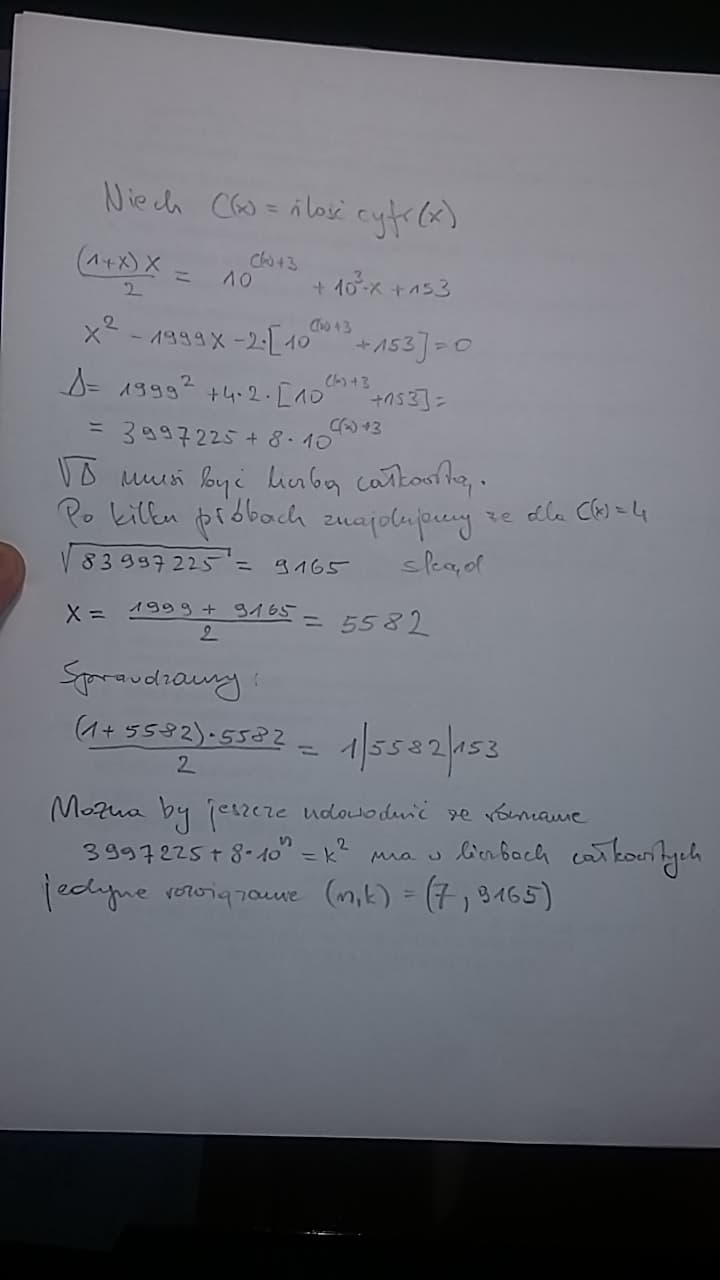 Niech C(x) = ilość cyfr(x)
(1+x)x/2 = 10^(C(x)+3) + 10^3·x + 153
x^2 - 1999x - 2·[10^(C(x)+3) + 153] = 0
Δ = 1999^2 + 4·2·[10^(C(x)+3) + 153] =
= 3997225 + 8·10^(C(x)+3)
√Δ musi być liczbą całkowitą.
Po kilku próbach znajdujemy że dla C(x) = 4
√83997225 = 9165 skąd
x = (1999 + 9165)/2 = 5582
Sprawdzamy:
(1+5582)·5582/2 = 1|5582|153
Można by jeszcze udowodnić że równanie
3997225 + 8·10^n = k^2 ma w liczbach całkowitych
jedyne rozwiązanie (n,k) = (7, 9165)